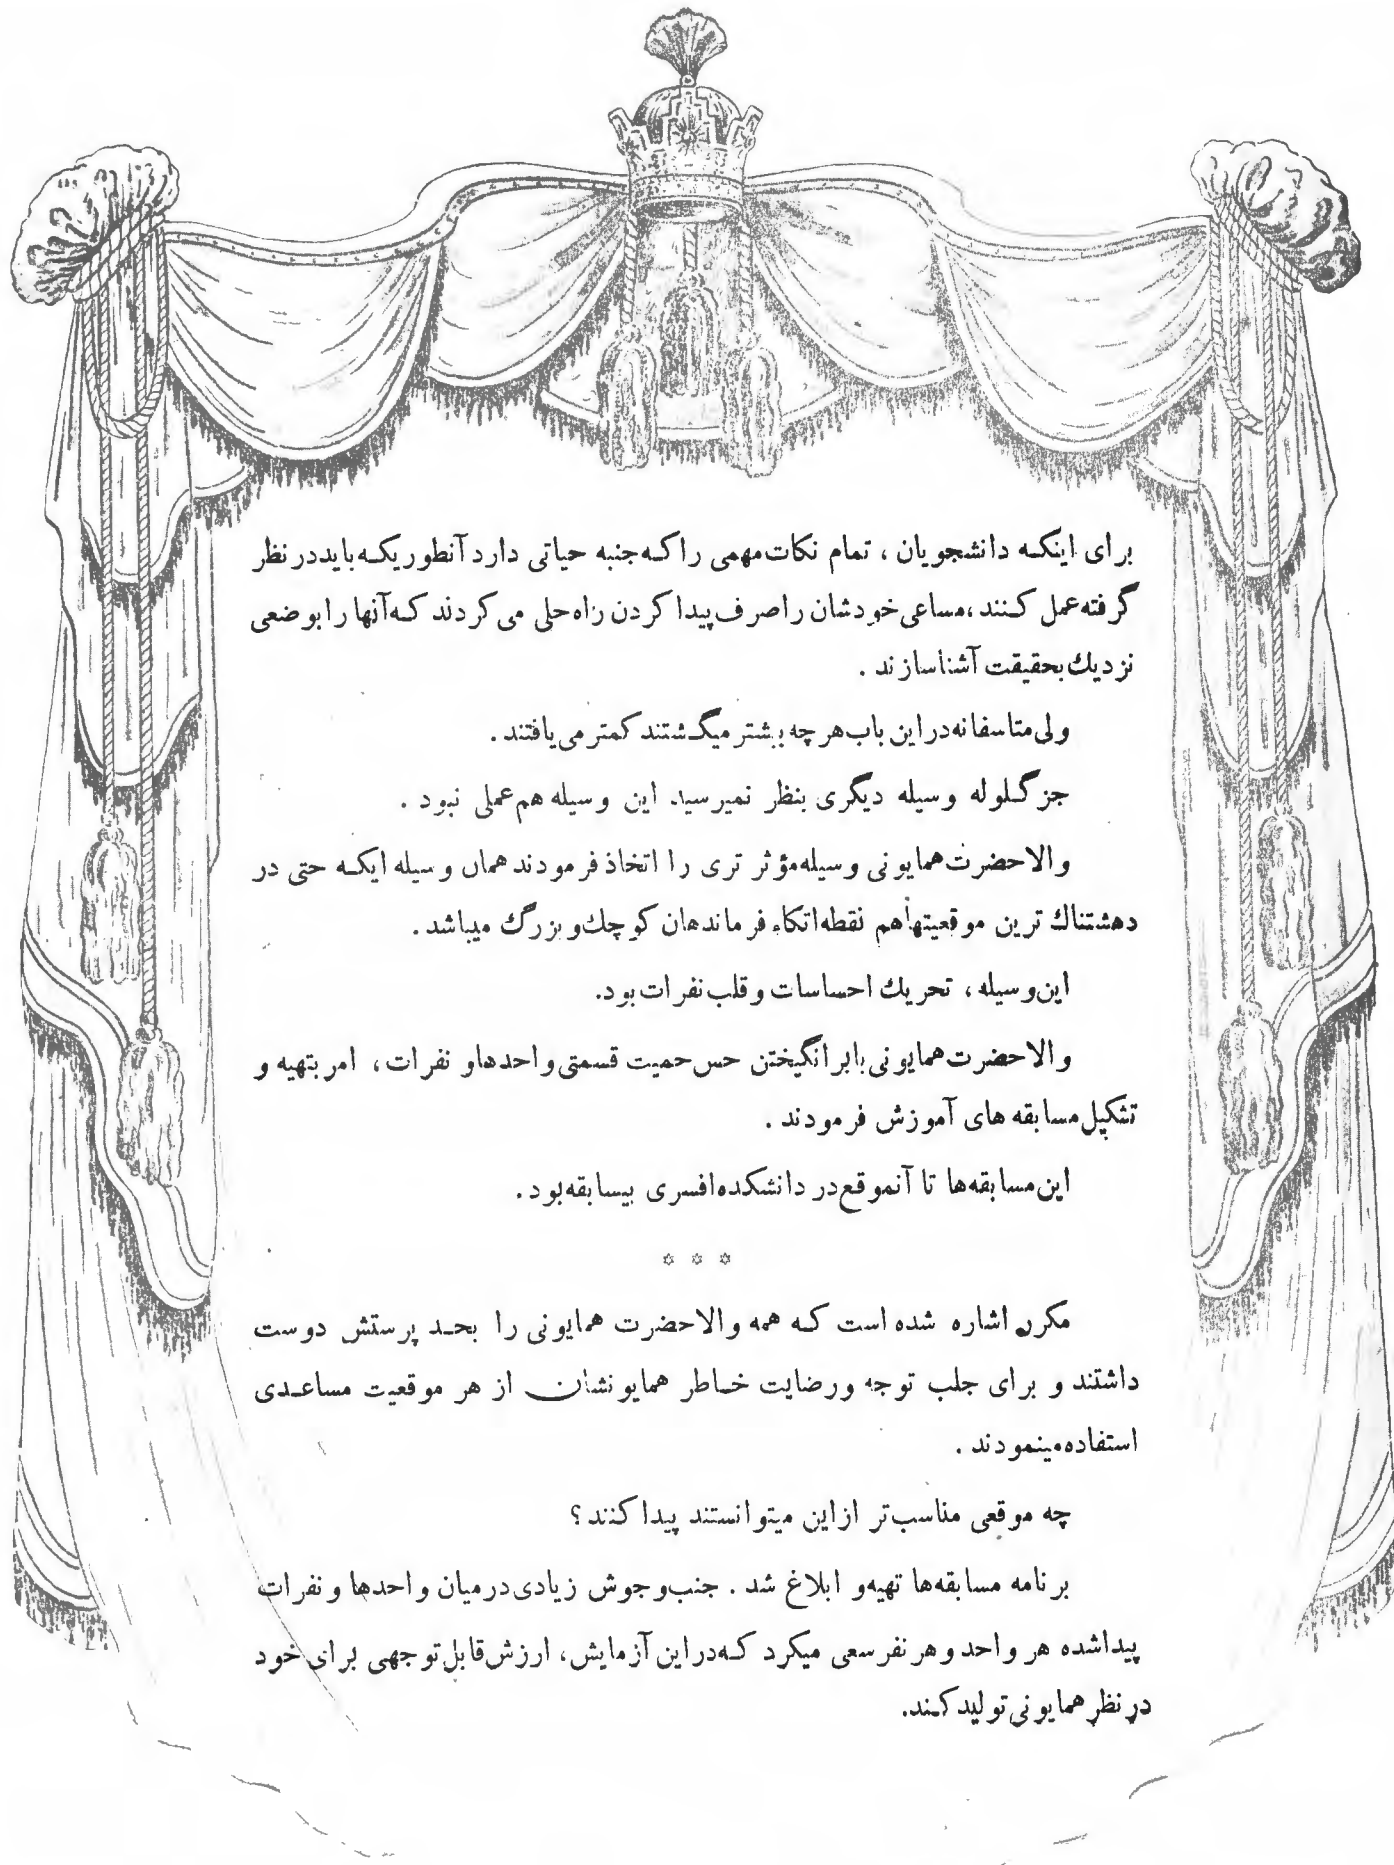 برای اینکه دانشجویان ، تمام نکات مهمی را که جنبه حیاتی دارد آنطوریکه باید در نظر
گرفته عمل کنند ، مساعی خودشان را صرف پیدا کردن راه حلی می کردند که آنها را بوضعی
نزدیك بحقیقت آشنا سازند .
ولی متاسفانه در این باب هر چه بیشتر میگشتند کمتر می یافتند .
جز گلوله وسیله دیگری بنظر نمیرسید این وسیله هم عملی نبود .
والاحضرت همایونی وسیله مؤثر تری را اتخاذ فرمودند همان وسیله ایکه حتی در
دهشتناك ترین موقعیتها هم نقطه اتکاء فرماندهان کوچك و بزرگ میباشد .
این وسیله ، تحریك احساسات و قلب نفرات بود.
والاحضرت همایونی با برانگیختن حس حمیت قسمتی واحدها و نفرات ، امر بتهیه و
تشکیل مسابقه های آموزش فرمودند .
این مسابقه ها تا آنموقع در دانشکده افسری بیسابقه بود .
☆ ☆ ☆
مکرر اشاره شده است که همه والاحضرت همایونی را بحد پرستش دوست
داشتند و برای جلب توجه و رضایت خاطر همایونشان از هر موقعیت مساعدی
استفاده مینمودند .
چه موقعی مناسب تر از این میتوانستند پیدا کنند ؟
برنامه مسابقه ها تهیه و ابلاغ شد . جنب و جوش زیادی در میان واحدها و نفرات
پیدا شده هر واحد و هر نفر سعی میکرد که در این آزمایش ، ارزش قابل توجهی برای خود
در نظر همایونی تولید کند.